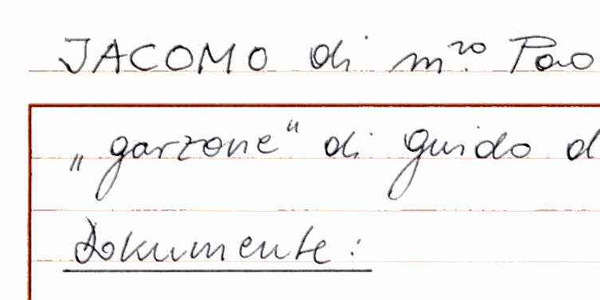 JACOMO di m.ro Pao
„garzone“ di Guido d
Dokumente: